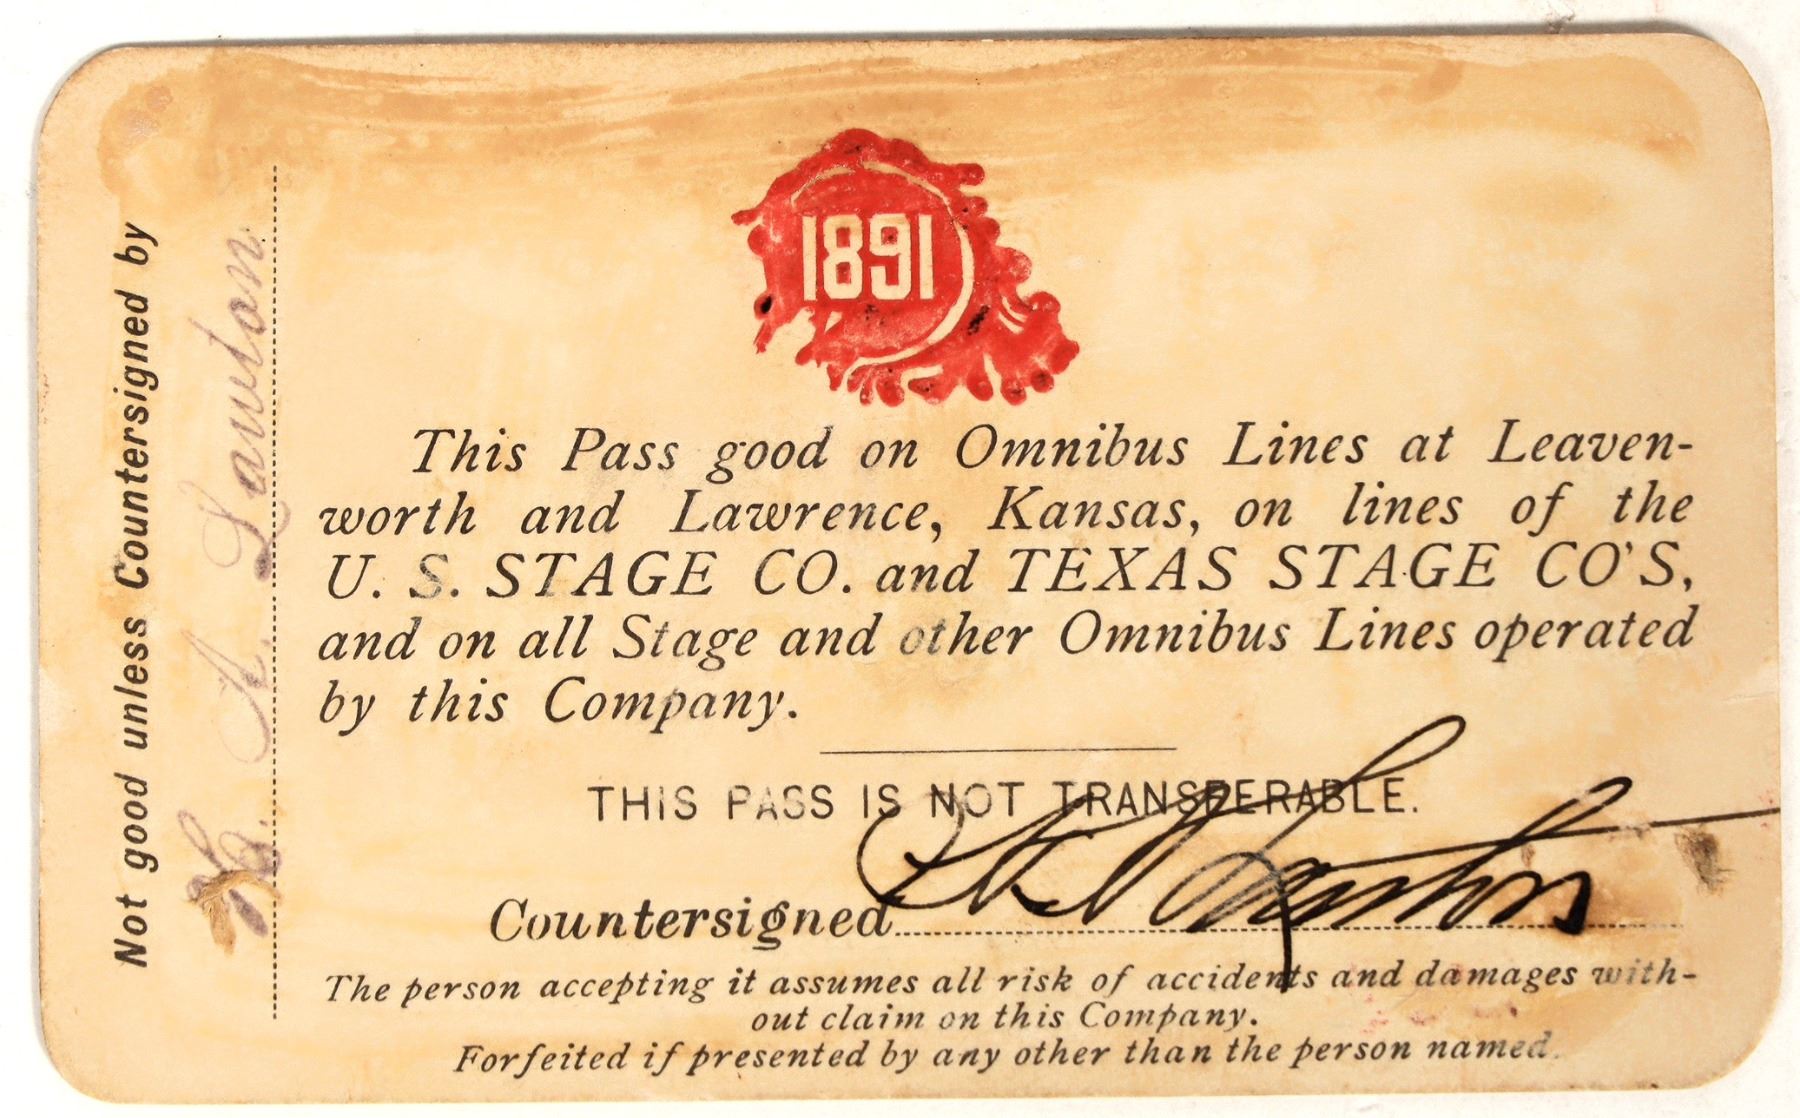 Not good unless Countersigned by
H. A. Lawton
1891
This Pass good on Omnibus Lines at Leaven-
worth and Lawrence, Kansas, on lines of the
U. S. STAGE CO. and TEXAS STAGE CO'S,
and on all Stage and other Omnibus Lines operated
by this Company.
THIS PASS IS NOT TRANSFERABLE.
Countersigned
The person accepting it assumes all risk of accidents and damages with-
out claim on this Company.
Forfeited if presented by any other than the person named.